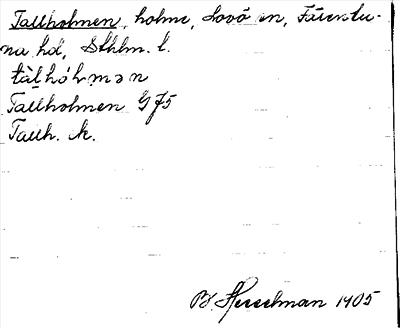 Tallholmen, holme, Lovö sn, Färentu-
na hd, Sthlm. l.
Tallholmen GJ5
Tallh. k.
B. Hesselman 1905